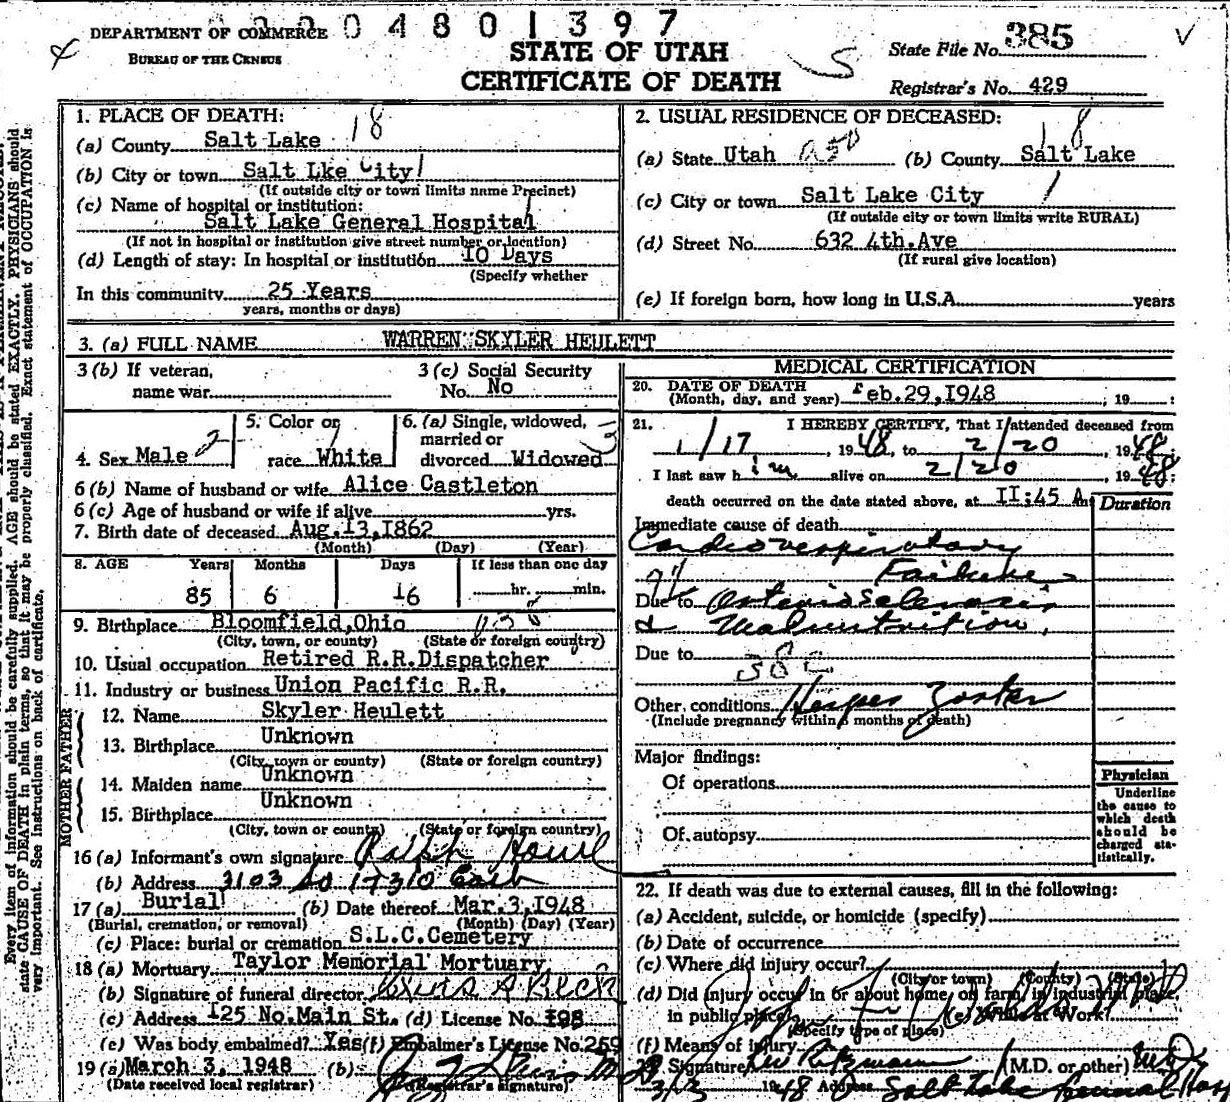 DEPARTMENT OF COMMERCE
BUREAU OF THE CENSUS
0 4 8 0 1 3 9 7
STATE OF UTAH
CERTIFICATE OF DEATH
State File No. 385
Registrar's No. 429
Every item of information should be carefully supplied. AGE should be stated EXACTLY. PHYSICIANS should
state CAUSE OF DEATH in plain terms, so that it may be properly classified. Exact statement of OCCUPATION is
very important. See instructions on back of certificate.
1. PLACE OF DEATH: 18
(a) County Salt Lake
(b) City or town Salt Lke City
(If outside city or town limits name Precinct)
(c) Name of hospital or institution:
Salt Lake General Hospital
(If not in hospital or institution give street number or location)
(d) Length of stay: In hospital or institution 10 Days
(Specify whether
In this community 25 Years
years, months or days)
2. USUAL RESIDENCE OF DECEASED: 18
(a) State Utah (b) County Salt Lake
(c) City or town Salt Lake City
(If outside city or town limits write RURAL)
(d) Street No. 632 4th.Ave
(If rural give location)
(e) If foreign born, how long in U.S.A. years
3. (a) FULL NAME WARREN SKYLER HEULETT
3 (b) If veteran,
name war
3 (c) Social Security
No. No
4. Sex Male 2
5. Color or
race White
6. (a) Single, widowed,
married or
divorced Widowed
6 (b) Name of husband or wife Alice Castleton
6 (c) Age of husband or wife if alive yrs.
7. Birth date of deceased Aug.13,1862
(Month) (Day) (Year)
8. AGE Years Months Days If less than one day
85 6 16 hr. min.
9. Birthplace Bloomfield,Ohio
(City, town, or county) (State or foreign country)
10. Usual occupation Retired R.R.Dispatcher
11. Industry or business Union Pacific R.R.
MOTHER FATHER
12. Name Skyler Heulett
13. Birthplace Unknown
(City, town or county) (State or foreign country)
14. Maiden name Unknown
15. Birthplace Unknown
(City, town or county) (State or foreign country)
16 (a) Informant's own signature Ralph
(b) Address 3103 So 17 East
17 (a) Burial (b) Date thereof Mar.3,1948
(Burial, cremation, or removal) (Month) (Day) (Year)
(c) Place: burial or cremation S.L.C.Cemetery
18 (a) Mortuary Taylor Memorial Mortuary
(b) Signature of funeral director A Beck
(c) Address 125 No.Main St. (d) License No. 198
(e) Was body embalmed? Yes (f) Embalmer's License No. 269
19 (a) March 3, 1948 (b)
(Date received local registrar) (Registrar's signature)
MEDICAL CERTIFICATION
20. DATE OF DEATH
(Month, day, and year) Feb.29,1948, 19 :
21. I HEREBY CERTIFY, That I attended deceased from
1/17, 1948, to 2/20, 1948.
I last saw h im alive on 2/20, 1948
death occurred on the date stated above, at II:45 A.
Duration
Immediate cause of death
Cardiorespiratory
Failure
Due to Arteriosclerosis
& Malnutrition,
Due to
Other conditions Herpes Zoster
(Include pregnancy within 3 months of death)
Major findings:
Of operations
Of autopsy
Physician
Underline
the cause to
which death
should be
charged sta-
tistically.
22. If death was due to external causes, fill in the following:
(a) Accident, suicide, or homicide (specify)
(b) Date of occurrence
(c) Where did injury occur?
(City or town) (County) (State)
(d) Did injury occur in or about home, on farm, in industrial place,
in public place? (e) While at Work?
(Specify type of place)
(f) Means of injury
23. Signature (M.D. or other) M.D.
3/3 1948 Address Salt Lake General Hosp